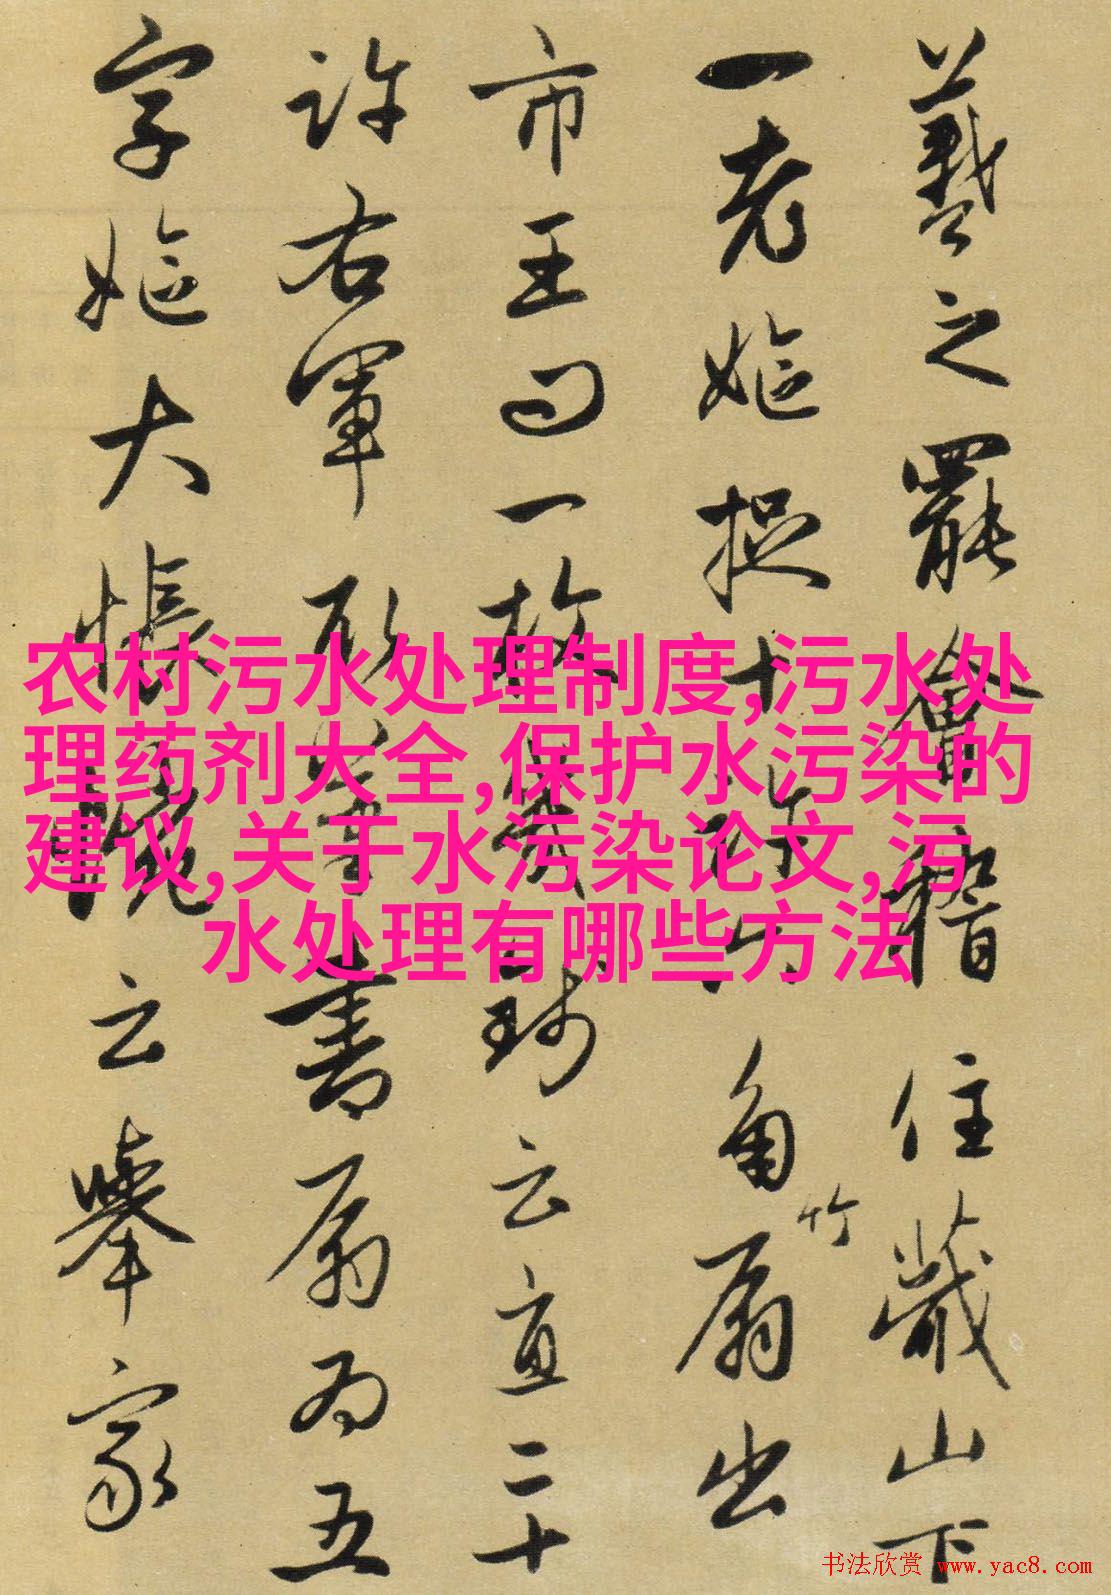 羲之罷會稽住蕺山下
一老嫗捉十許六角扇出
竹
市王曰一故幾錢云直二十
許右軍取筆書扇為五
字嫗大悵惋云舉家
农村污水处理制度,污水处
理药剂大全,保护水污染的
建议,关于水污染论文,污
水处理有哪些方法
书法欣赏 www.yac8.com